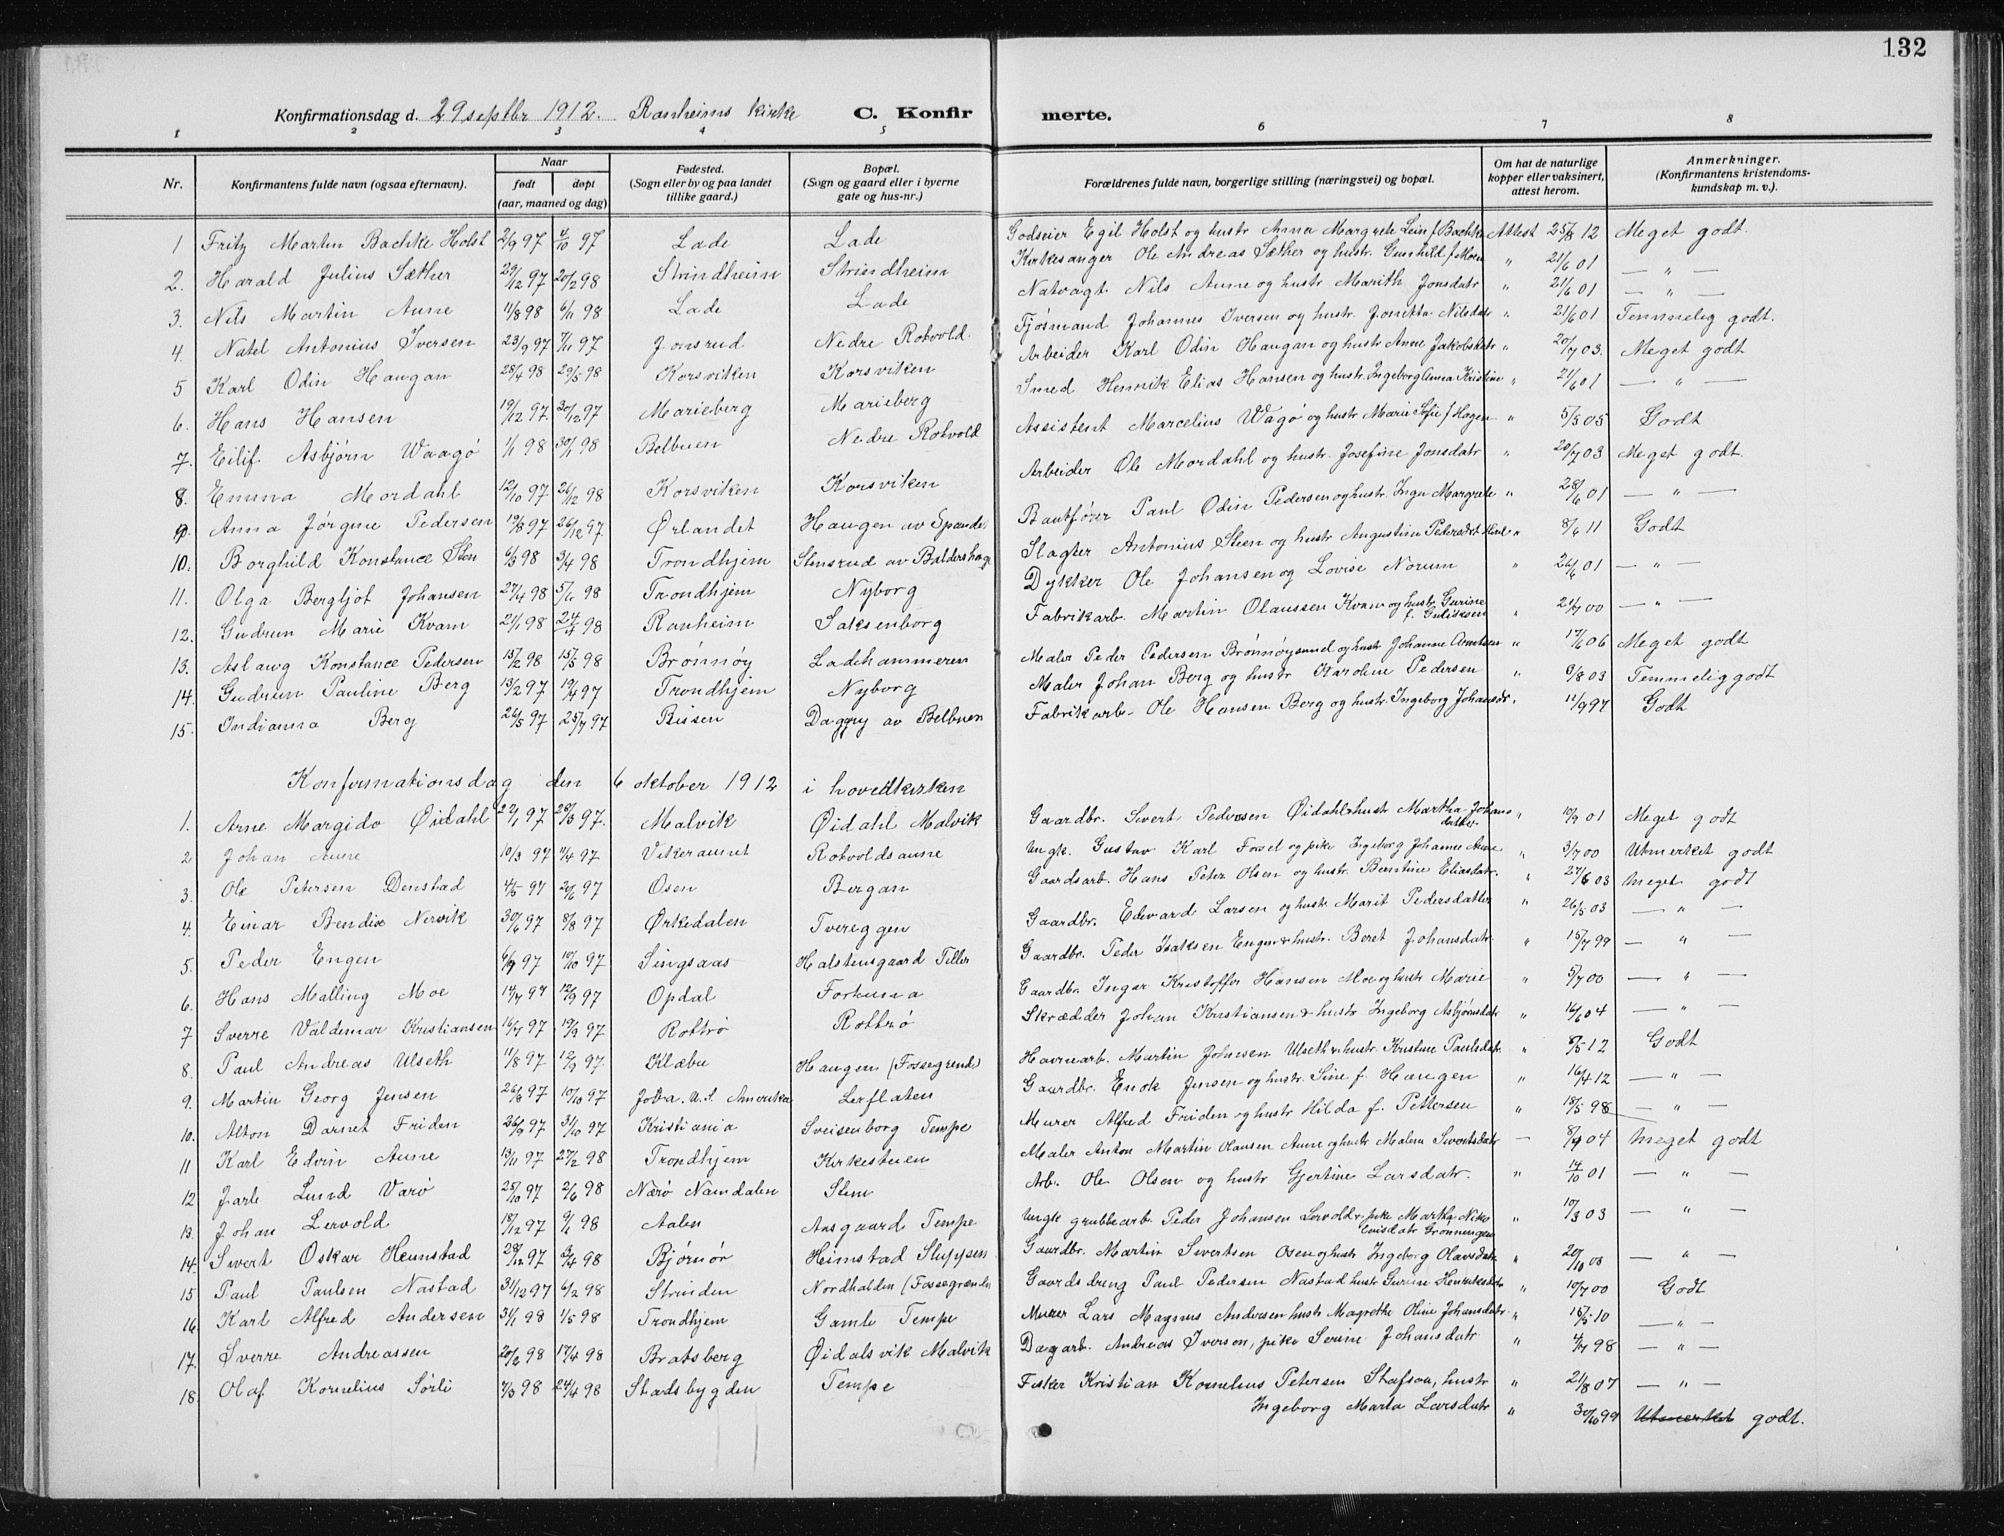 132
Konfirmationsdag d. 29 septbr 1912. Ranheims kirke C. Konfirmerte.
1 2 3 4 5 6 7 8
Nr. Konfirmantens fulde navn (ogsaa efternavn). Naar født døpt (aar, maaned og dag) Fødested. (Sogn eller by og paa landet tillike gaard.) Bopæl. (Sogn og gaard eller i byerne gate og hus-nr.) Forældrenes fulde navn, borgerlige stilling (næringsvei) og bopæl. Om hat de naturlige kopper eller vaksinert, attest herom. Anmerkninger. (Konfirmantens kristendomskundskap m. v.).
1 Fritz Martin Bachke Holst 2/9 97 4/10 97 Lade Lade Godseier Egil Holst og hustr Anna Margrete Lein f Bachke Attest 25/8 12 Meget godt
2. Harald Julius Sæther 29/12 97 20/2 98 Strindheim Strindheim Kirkesanger Ole Andreas Sæther og hustr. Gunhild f Moen " 21/6 01 — " —
3. Nils Martin Aune 11/8 98 6/11 98 Lade Lade Natvagt Nils Aune og hustr Marith Jonsdatr " 21/6 01 — " —
4. Natel Antonius Iversen 23/9 97 7/11 97 Jonsrud Nedre Rotvold Fjøsmand Johannes Iversen og hustr. Jonetta Nilsdatr " 21/6 01 Temmelig godt.
5 Karl Odin Haugan 28/4 98 29/5 98 Korsviken Korsviken Arbeider Karl Odin Haugan og hustr Anne Jakobsdatr " 20/7 03. Meget godt
6. Hans Hansen 19/12 97 30/12 97 Marieberg Marieberg Smed Henrik Elias Hansen og hustr. Ingeborg Anna Kristine " 21/6 01 — " —
7. Eilif Asbjørn Waagø 1/1 98 30/1 98 Belbuen Nedre Rotvold Assistent Marcelius Wagø og hustr Marie Sofie f Hagen " 5/5 05 Godt
8. Emma Mordahl 12/10 97 26/12 98 Korsviken Korsviken Arbeider Ole Mordahl og hustr. Josefine Jonsdatr " 20/7 03 Meget godt
9. Anna Jørgine Pedersen 19/8 97 26/12 97. Ørlandet Haugen av Spande. Bautfører Paul Odin Pedersen og hustr. Inga Margrete " 28/6 01 — " —
10. Borghild Konstance Sten 6/3 98 3/4 98 Trondhjem Stensrud av Baldershage Slagter Antonius Steen og hustr Augustine " 8/6 11 Godt
11. Olga Bergljot Johansen 27/4 98 5/6 98 Trondhjem Nyborg Dykker Ole Johansen og Lovise Norum " 26/6 01 — " —
12. Gudrun Marie Kvam 21/1 98 24/4 98 Ranheim Saksenborg Fabrikarb. Martin Olaussen Kvam og hustr Gurine " 21/7 00 — " —
13. Aslaug Konstance Pedersen 15/2 98 15/5 98 Brønnøy Ladehammeren Maler Peder Pedersen Brønnøysund og hustr Johanne Arntsen " 17/6 06 Meget godt
14. Gudrun Pauline Berg 13/2 97 19/4 97 Trondhjem Nyborg Maler Johan Berg og hustr Karoline Pedersen " 9/8 03 Temmelig godt
15. Indianna Berg 26/5 97 25/7 97 Rissen Dagny av Belbuen Fabrikarb. Ole Hansen Berg og hustr. Ingeborg Johansdr. 11/9 97 Godt
Konfirmationsdag den 6 oktober 1912 i hovedkirken
1. Arne Margido Øidahl 22/1 97 28/3 97. Malvik Øidahl Malvik Gaardbr. Sivert Pedersen Øidahl hustr Martha Johansdatter " 10/9 01 Meget godt
2 Johan Aune 10/3 97 11/4 97 Vikeraunet Rotvoldsaune Ungk. Gustav Karl Forsel og pike Ingeborg Johannes Aune " 3/7 00 Utmerket godt
3. Ole Petersen Denstad 4/5 97 20/6 97 Osen Bergan Gaardsarb. Hans Peter Olsen og hustr. Berntine Eliasdatr. " 27/6 03 Meget godt
4. Einar Bendix Nervik 30/6 97 8/8 97 Ørkedalen Tvereggen Gaardbr. Edevard Larsen og hustr Marit Pedersdatter " 26/5 03 — " —
5. Peder Engen 6/9 97 10/10 97 Singsaas Halstensgaard Tiller Gaardbr. Peder Isaksen Engen & hustr. Beret Johansdatr " 15/7 99 — " —
6. Hans Malling Moe 14/7 97 12/9 97 Opdal Forkuna Gaardbr. Ingar Kristoffer Hansen Moe og hustr Marie " 5/7 00 — " —
7 Sverre Valdemar Kristiansen 14/7 97 19/9 97 Rottrø Rottrø Skrædder Johan Kristiansen & hustr Ingeborg Asbjørnsdatr " 16/6 04 — " —
8. Paul Andreas Ulseth 11/8 97 12/9 97. Klæbu Haugen (Fossegrenda) Havnearb. Martin Johnsen Ulseth & hustr. Kristine Paulsdatr. " 8/5 12 Godt
9. Martin Georg Jensen 26/8 97 10/10 97 Amerika Lerflaten Gaardbr. Enok Jensen og hustr. Sine f. Haugen " 16/4 12 — " —
10. Alton Darnet Friden 26/9 97 31/10 97 Kristiania Sveisenborg Tempe Murer Alfred Friden og hustr Hilda f. Pettersen " 18/5 98 — " —
11 Karl Edvin Aune 13/11 97 27/2 98 Trondhjem Kirkestuen Maler Anton Martin Olausen Aune og hustr Malena Sivertsdatr — 8/9 04 Meget godt
12 Jarle Lund Varø 25/10 97 2/6 98 Nærø Namdalen Stem Arb. Ole Olsen og hustr Gjertine Larsdatr. " 14/10 01 — " —
13. Johan Lervold 18/12 97 9/1 98 Aalen Aasgaard Tempe Ungk grubbearb. Peder Johansen Lervold & pike Martha Grønningen " 10/3 03 — " —
14. Sivert Oskar Heimstad 28/12 97 3/4 98 Bjørnør Heimstad Sluppen Gaardbr. Martin Sivertsen Osen og hustr Ingeborg Olavsdatr " 20/10 00 — " —
15 Paul Paulsen Nastad 31/12 97 6/2 98 Strinden Nordhalden (Fossegrenda Gaardsdreng Paul Pedersen Nastad hustr Gurine Henriksdatr " 10/7 00 Godt
16. Karl Alfred Andersen 31/1 98 1/5 98 Trondhjem Gamle Tempe Murer Lars Magnus Andersen hustr Magrethe Oline Johansdatr " 15/5 10 — " —
17. Sverre Andreassen 20/2 98 17/4 98 Bratsberg Øidalsvik Malvik Dagarb. Andreas Iverson, pike Serine Johansdatr " 4/7 98 — " —
18. Olaf Kornelius Sørli 7/3 98 24/4 98 Stadsbygden Tempe Fisker Kristian Kornelius Petersen Stafson, hustr " 21/8 07 — " —
Ingeborg Marta Larsdatr " 30/10 99 Utmerket godt.